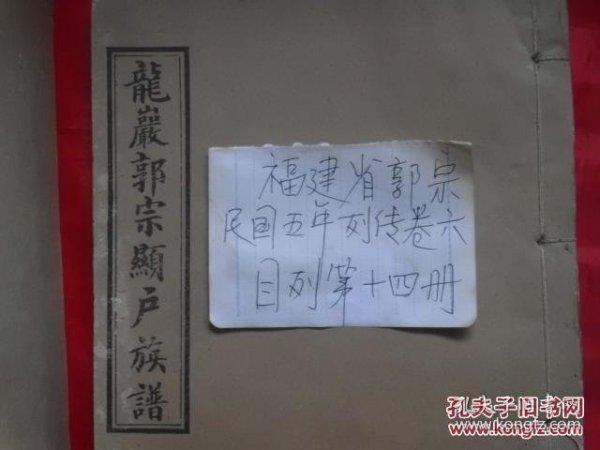 龍巖郭宗顯戶族譜
福建省郭宗
民国五年列传卷六
目列第十四册
孔夫子旧书网
www.kongfz.com